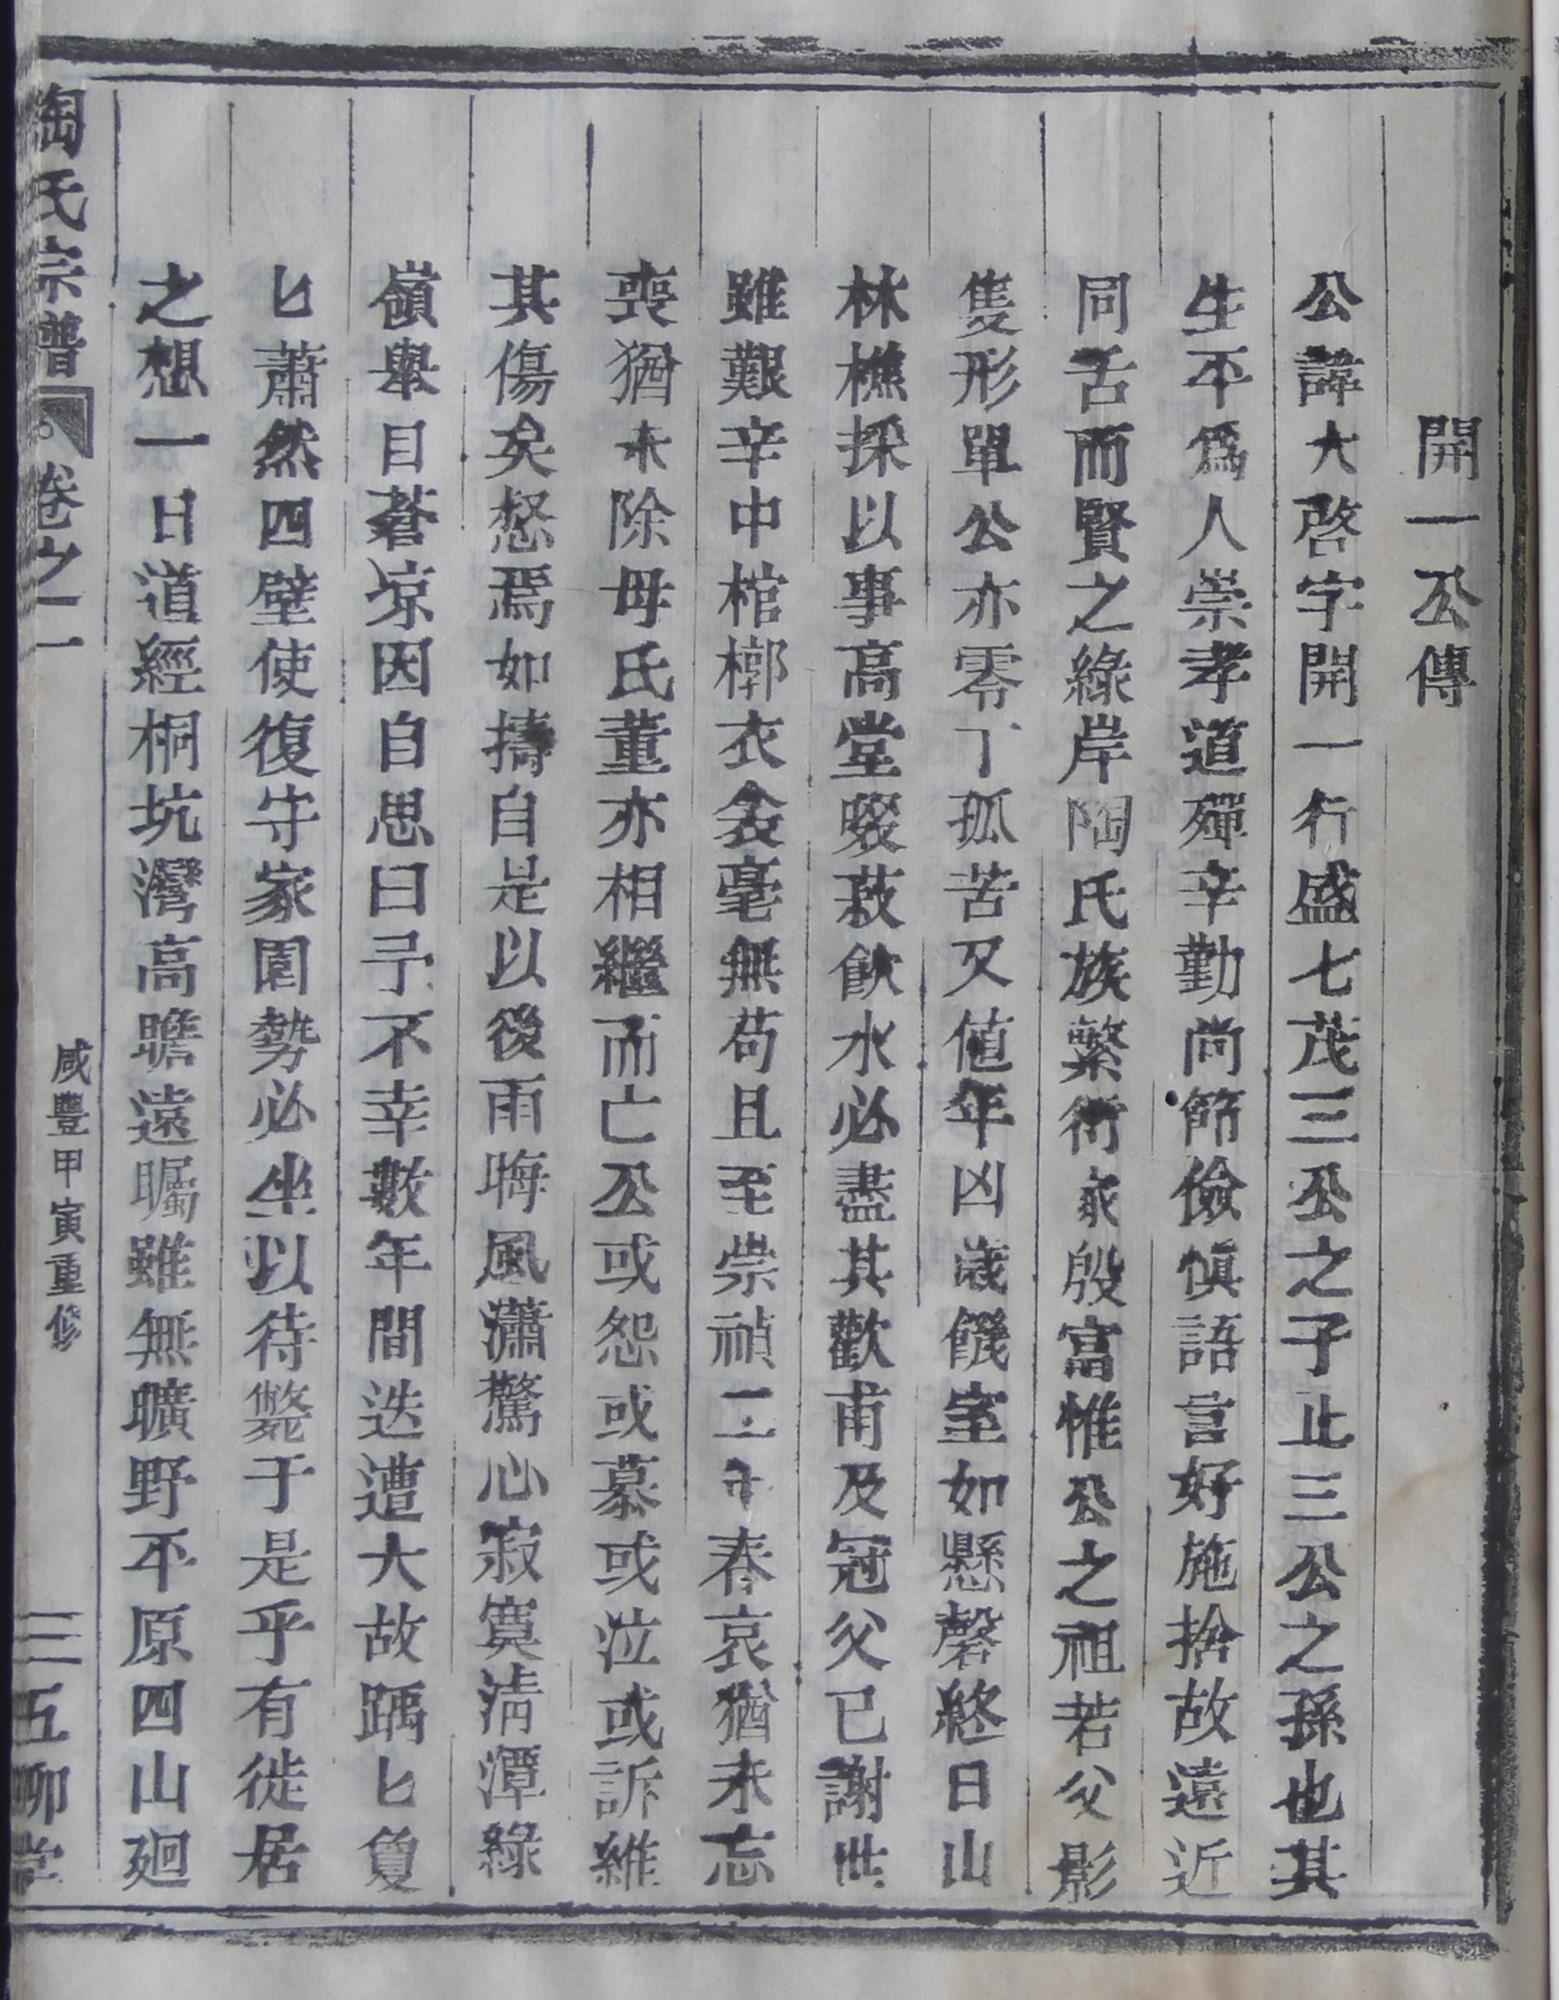 開一公傳
公諱大啓字開一行盛七茂三公之子止三公之孫也其
生平爲人崇孝道殫辛勤尚節儉愼語言好施捨故遠近
同舌而賢之綠岸陶氏族繁衍家殷富惟公之祖若父影
隻形單公亦零丁孤苦又値年凶歲饑室如懸磬終日山
林樵採以事高堂啜菽飮水必盡其歡甫及冠父已謝世
雖艱辛中棺槨衣衾毫無苟且至崇禎二年春哀猶未忘
喪猶未除母氏董亦相繼而亡公或怨或慕或泣或訴維
其傷矣惄焉如擣自是以後雨晦風瀟驚心寂寞淸潭綠
嶺舉目蒼凉因自思曰予不幸數年間迭遭大故踽匕𠆲
匕蕭然四壁使復守家園勢必坐以待斃于是乎有徙居
之想一日道經桐坑灣高瞻遠矚雖無曠野平原四山廻
陶氏宗譜 卷之一 咸豐甲寅重修 三 五柳堂